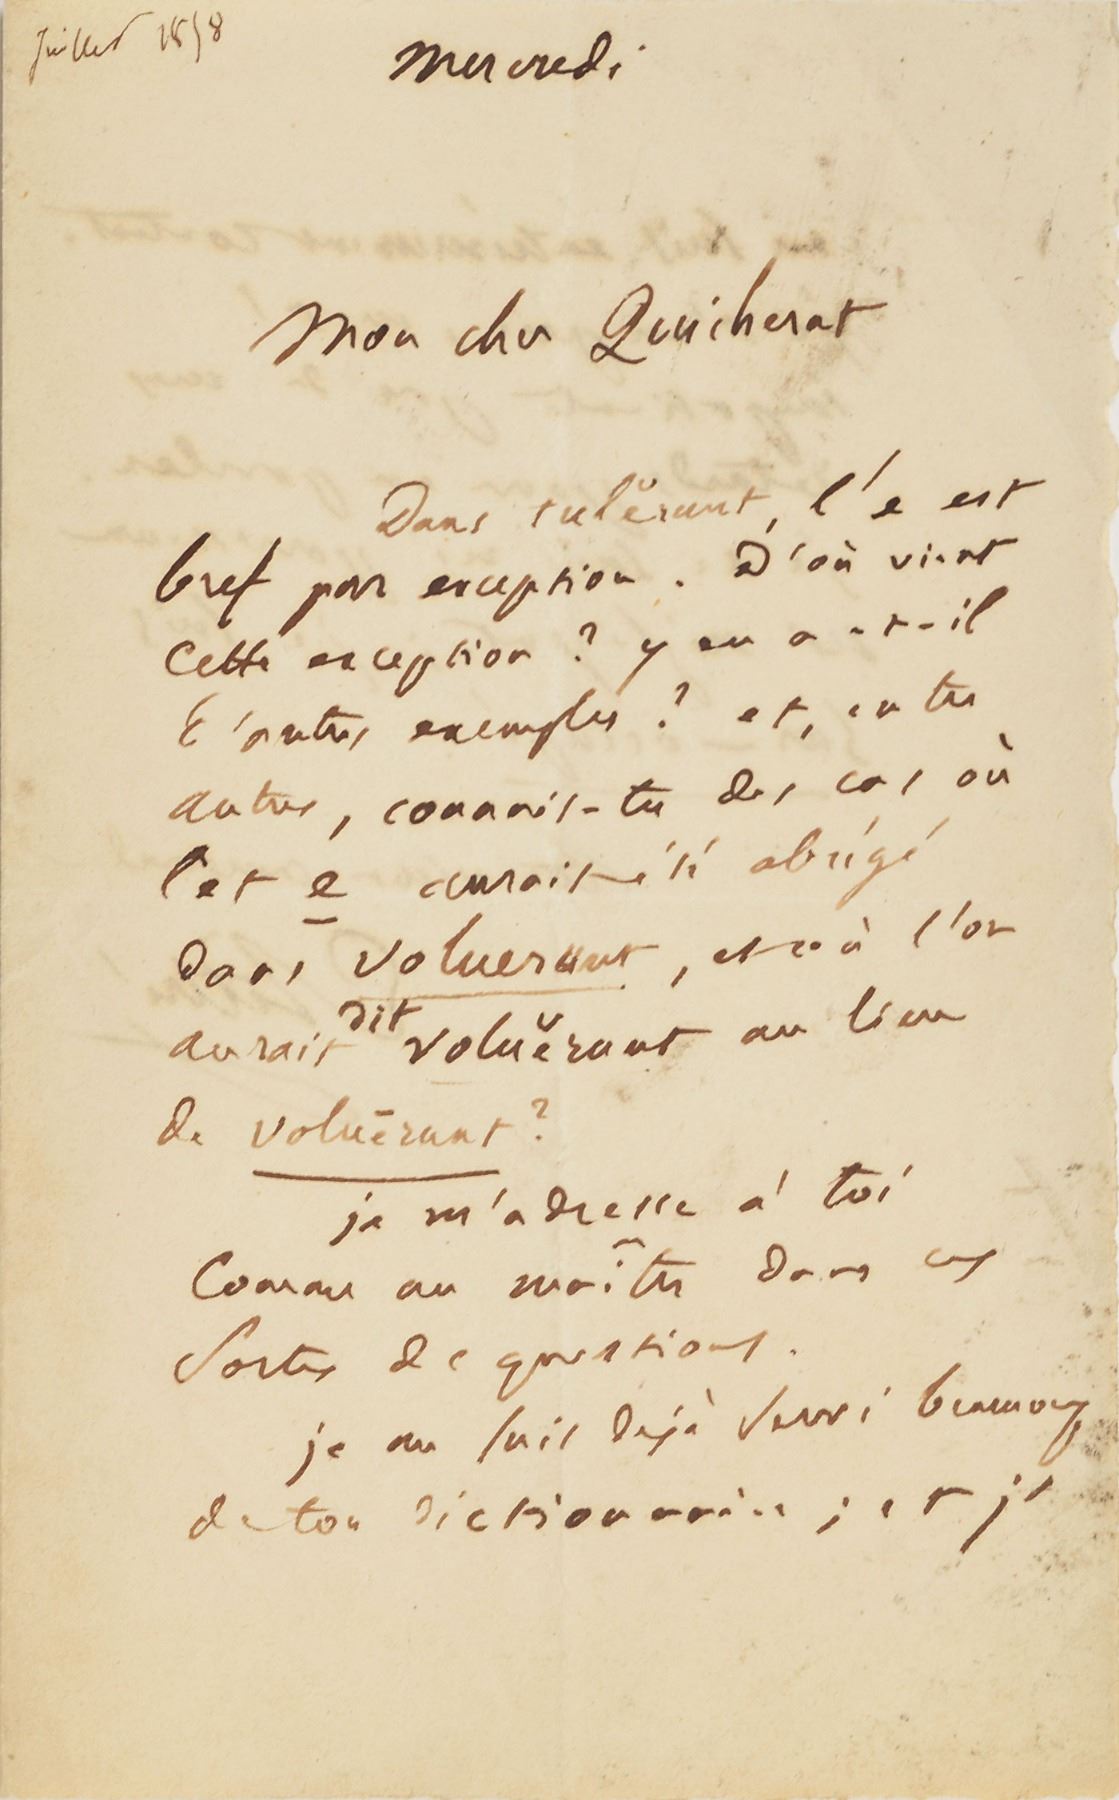 Juillet 1858
Mercredi
Mon cher Quicherat
Dans tulĕrunt, l'e est
bref par exception. D'où vient
cette exception ? y en a-t-il
d'autres exemples ? et, entre
autres, connais-tu des cas où
l'et e aurait été abrégé
dans voluerunt, et où l'on
aurait dit voluĕrunt au lieu
de voluērunt ?
je m'adresse à toi
Comme au maître dans ces
sortes de questions.
je me suis déjà servi beaucoup
de ton dictionnaire ; et je